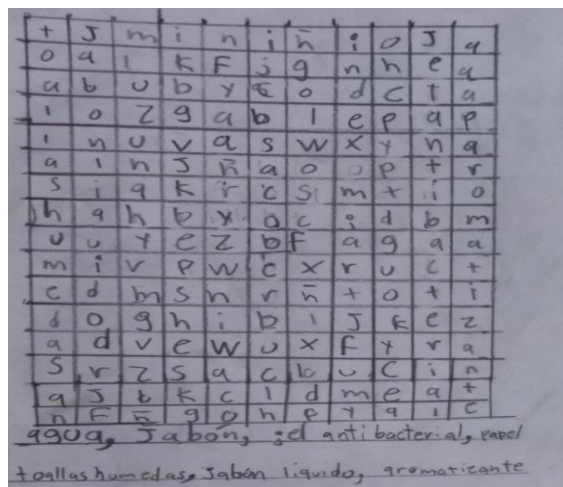 t J m i n i ñ i o J a
o a l k F j g n h e a
a b u b y t o d c t a
l o z g a b l e p a p
l n u v a s w x y n a
a l n J ñ a o o p t r
s i q k r c s m t i o
h q h b y o c i d b m
u u y e z b f a g a a
m i v p w e x r u c t
e d m s n r ñ t o t i
d o g h i b l J k e z
a d v e w u x f y r a
s r z s a c k u c i n
q J t k c l d m e a t
n F ñ g o h p y q i c
agua, Jabón, gel antibacterial, papel
toallas humedas, Jabón liquido, aromatizante